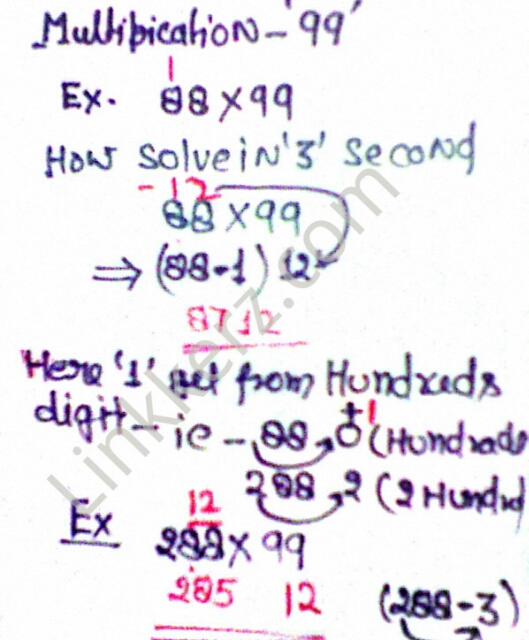 Multipication - '99'
1
Ex. 88 X 99
How solve in '3' second
- 12
88 X 99
⇒ (88-1) 12
8712
Here '1' get from Hundreds
digit - ie - 88 → 0 +1 (Hundrads
288 → 2 (2 Hundrd)
12
Ex 288 X 99
285 12 (288-3)
Linkkerz.com